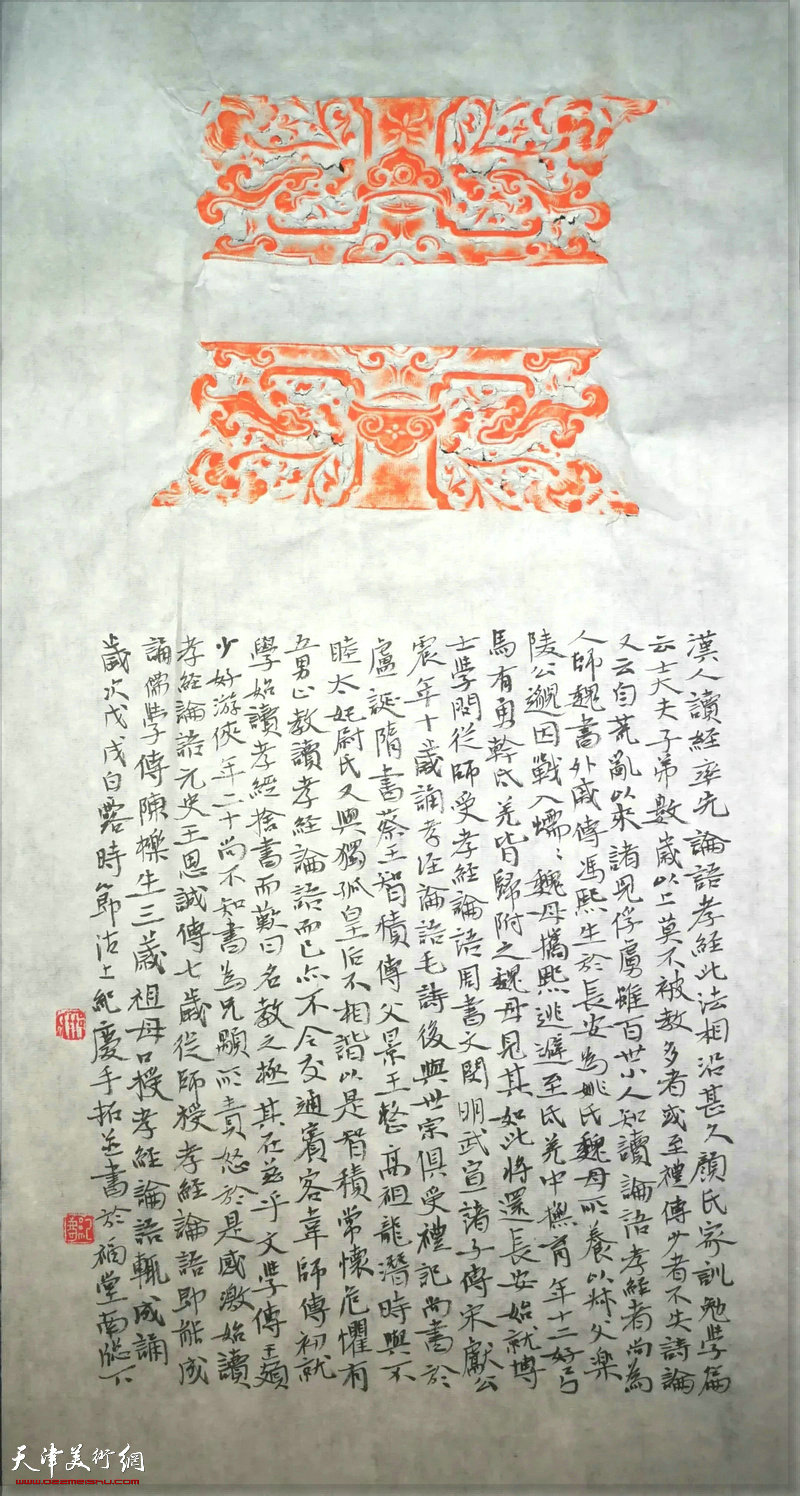 漢人讀經率先論語孝經此法相沿甚久顏氏家訓勉學篇
云士大夫子弟數歲以上莫不被教多者或至禮傳少者不失詩論
又云自荒亂以來諸見俘虜雖百世小人知讀論語孝經者尚為
人師魏書外戚傳馮熙生於長安為姚氏魏母所養以叔父樂
陵公邈因戰入蠕々魏母攜熙逃避至氐羌中撫育年十二好弓
馬有勇幹氐羌皆歸附之魏母見其如此將還長安始就博
士學問從師受孝經論語周書文閔明武宣諸子傳宋獻公
震年十歲誦孝經論語毛詩後與世宗俱受禮記尚書於
盧誕隋書蔡王智積傳父景王整高祖龍潛時與不
睦太妃尉氏又與獨孤皇后不相諧以是智積常懷危懼有
五男止教讀孝經論語而已亦不令交通賓客韋師傳初就
學始讀孝經捨書而歎曰名教之極其在茲乎文學傳王頍
少好游俠年二十尚不知書為兄顒所責怒於是感激始讀
孝經論語元史王思誠傳七歲從師授孝經論語即能成
誦儒學傳陳櫟生三歲祖母口授孝經論語輒成誦
歲次戊戌白露時節沽上紀慶手拓並書於福堂南窗下
天津美術網
www.022meishu.com